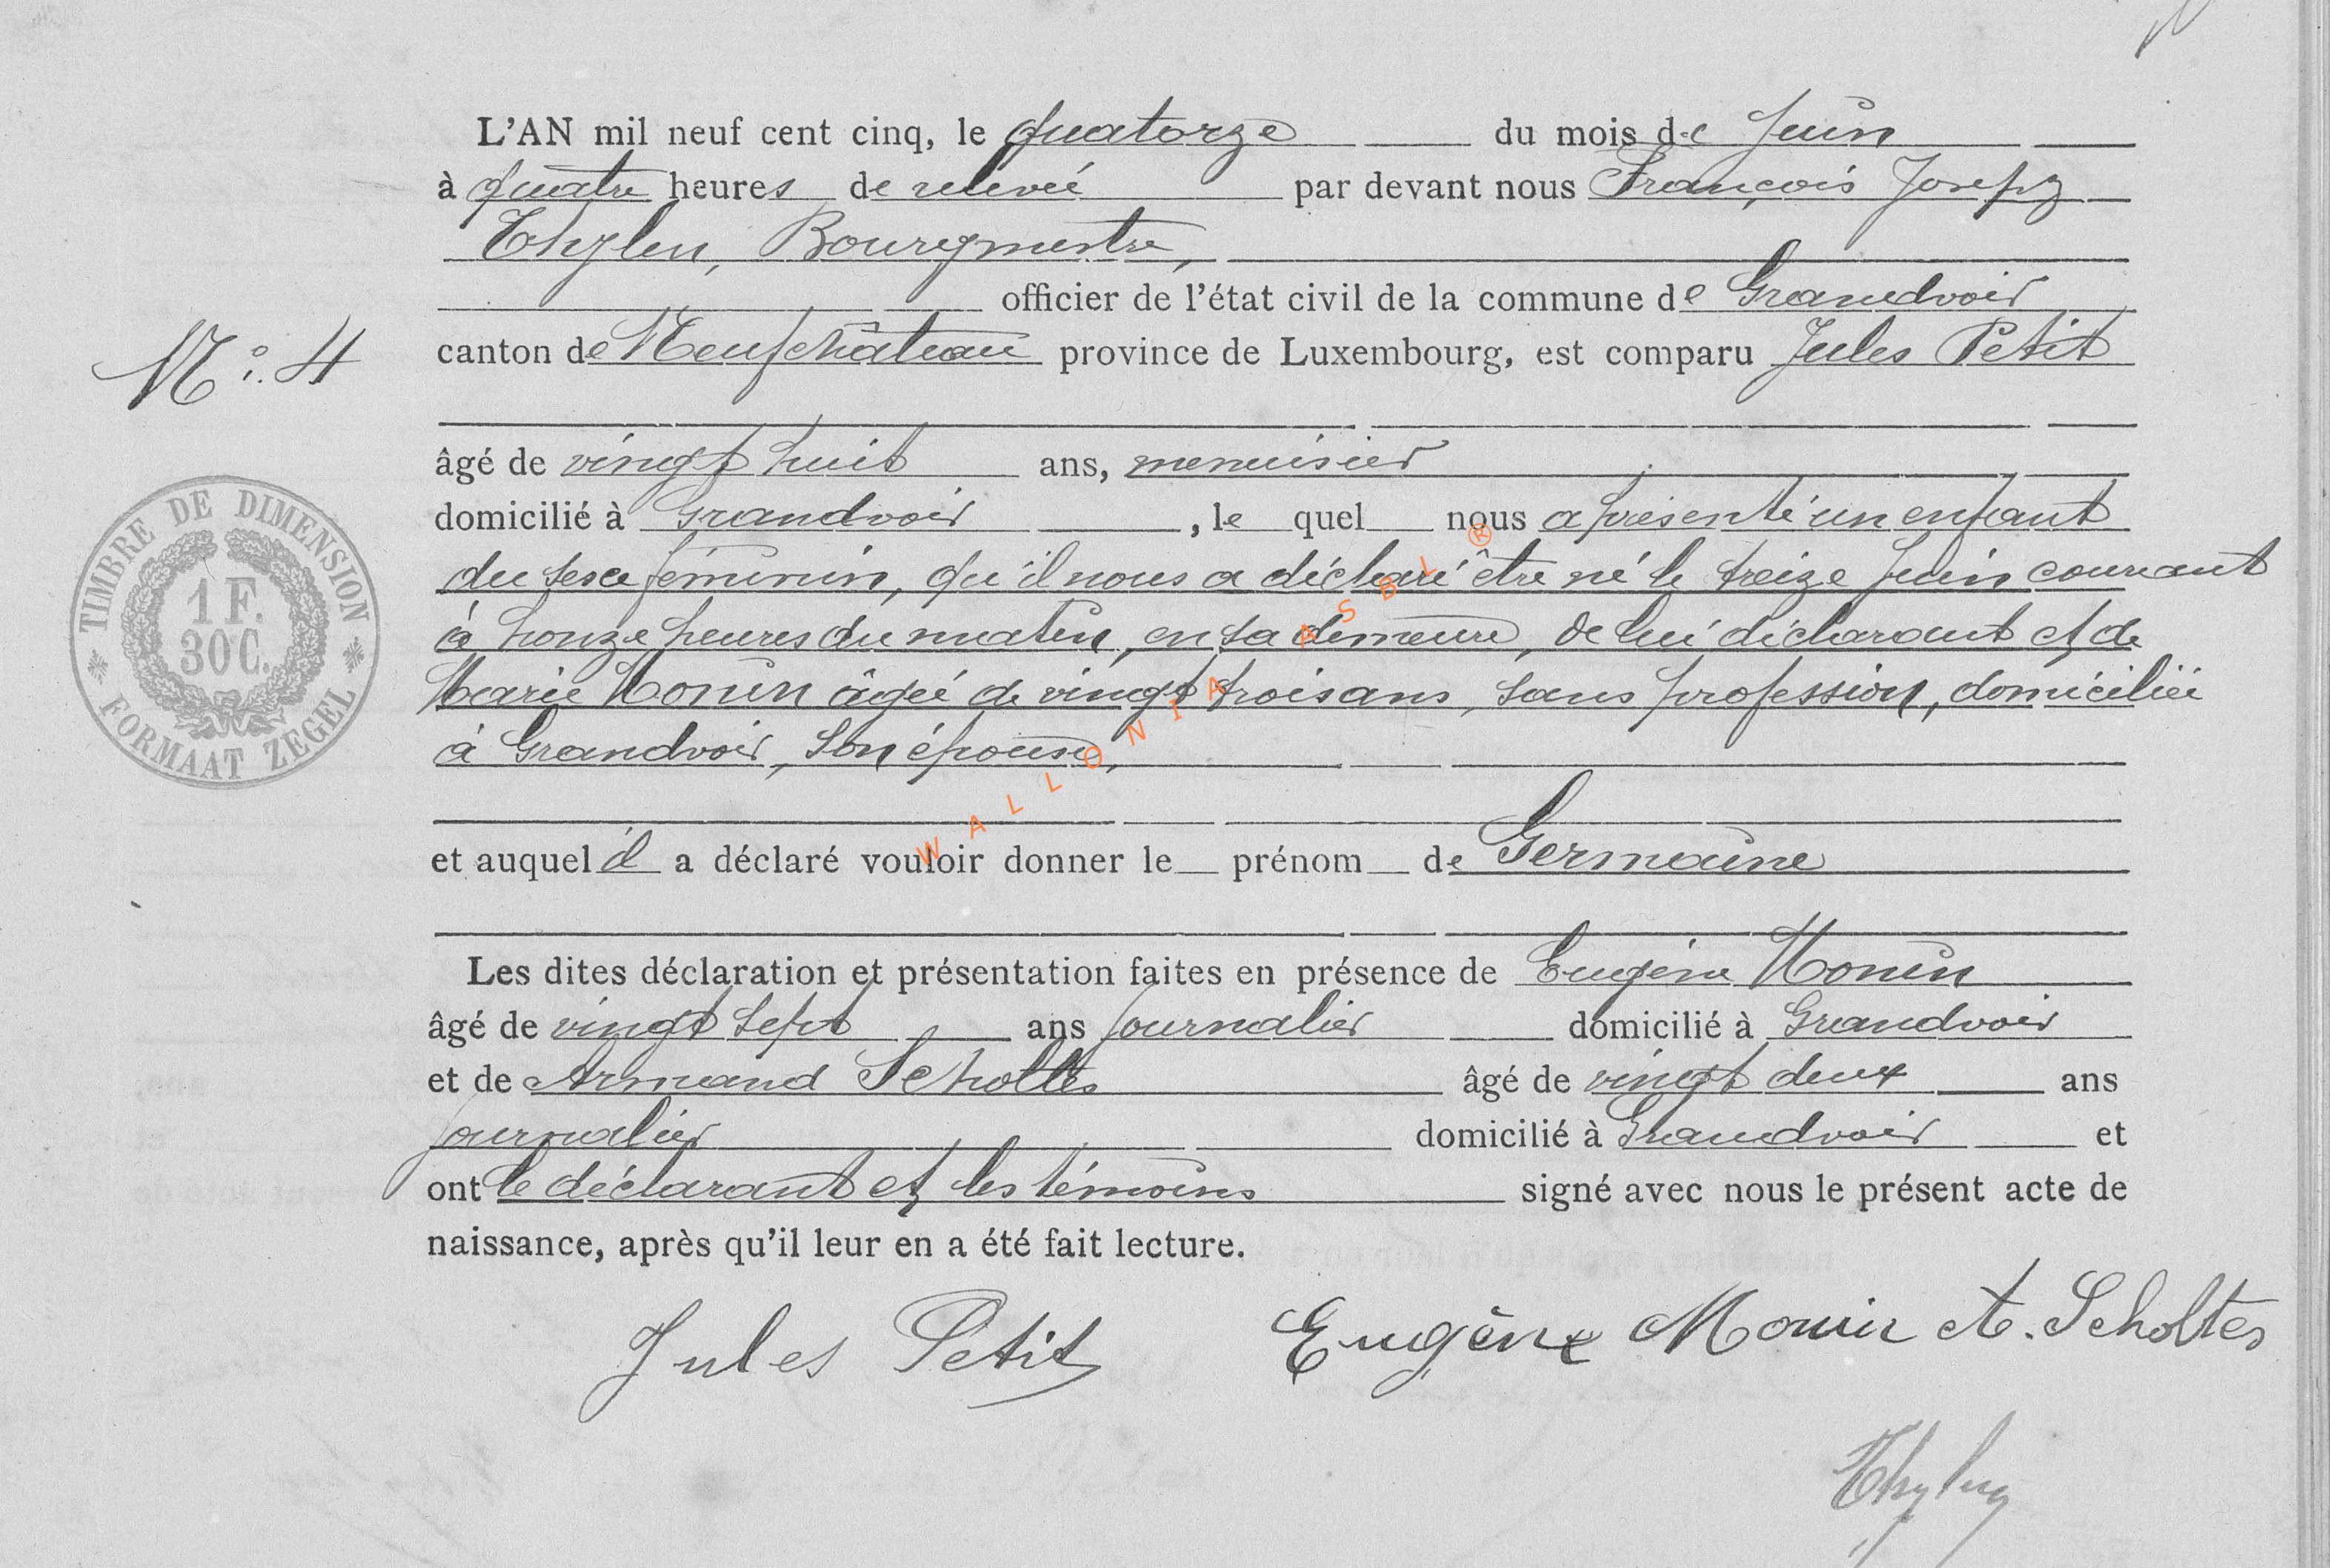 L'AN mil neuf cent cinq, le quatorze du mois de Juin
à quatre heures de relevée par devant nous François Joseph
Thylen, Bourgmestre,
officier de l'état civil de la commune de Grandvoir
N° 4
canton de Neufchâteau province de Luxembourg, est comparu Jules Petit
âgé de vingt huit ans, menuisier
domicilié à Grandvoir, le quel nous a présenté un enfant
du sexe féminin, qu'il nous a déclaré être né le treize Juin courant
à honze heures du matin, en sa demeure, de lui déclarant et de
Marie Monin âgée de vingt trois ans, sans profession, domiciliée
à Grandvoir, son épouse,
et auquel il a déclaré vouloir donner le prénom de Germaine
Les dites déclaration et présentation faites en présence de Eugène Monin
âgé de vingt sept ans journalier domicilié à Grandvoir
et de Armand Scholtes âgé de vingt deux ans
journalier domicilié à Grandvoir et
ont le déclarant et les témoins signé avec nous le présent acte de
naissance, après qu'il leur en a été fait lecture.
Jules Petit Eugène Monin A. Scholtes
TIMBRE DE DIMENSION
1 F.
30 C.
FORMAAT ZEGEL
WALLONIA ASBL ®